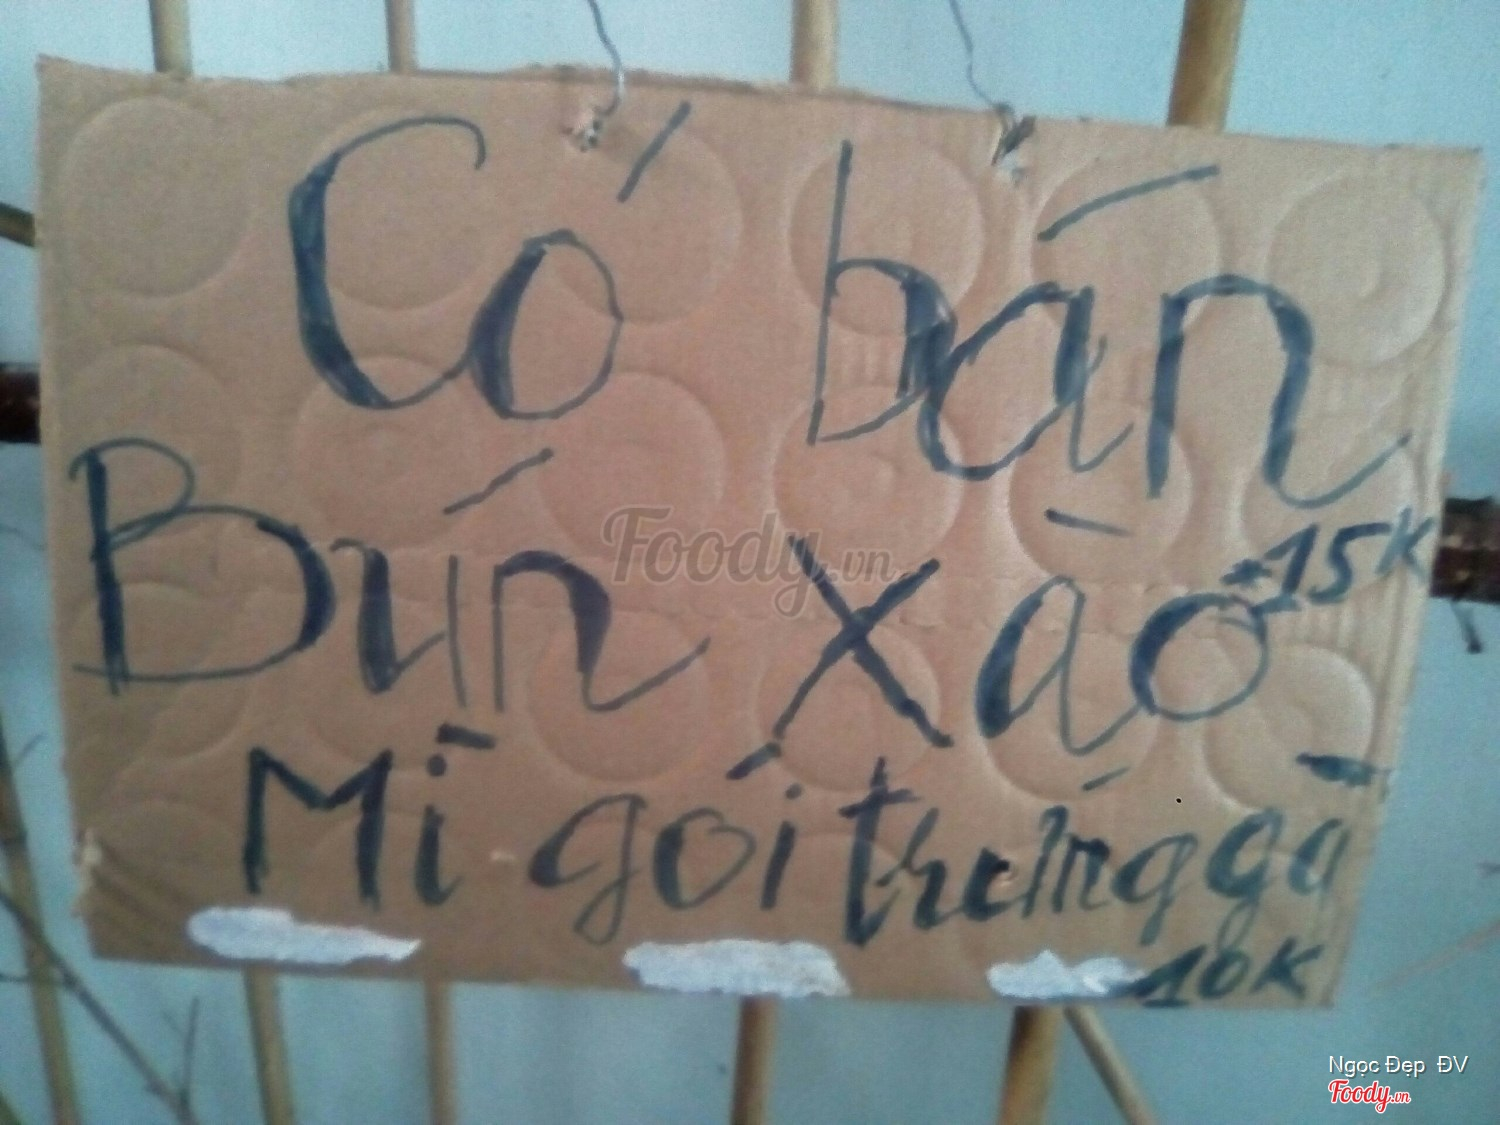 Có bán
Bún xào 15K
Mì gói trứng gà
10K
Foody.vn
Ngọc Đẹp ĐV
Foody.vn